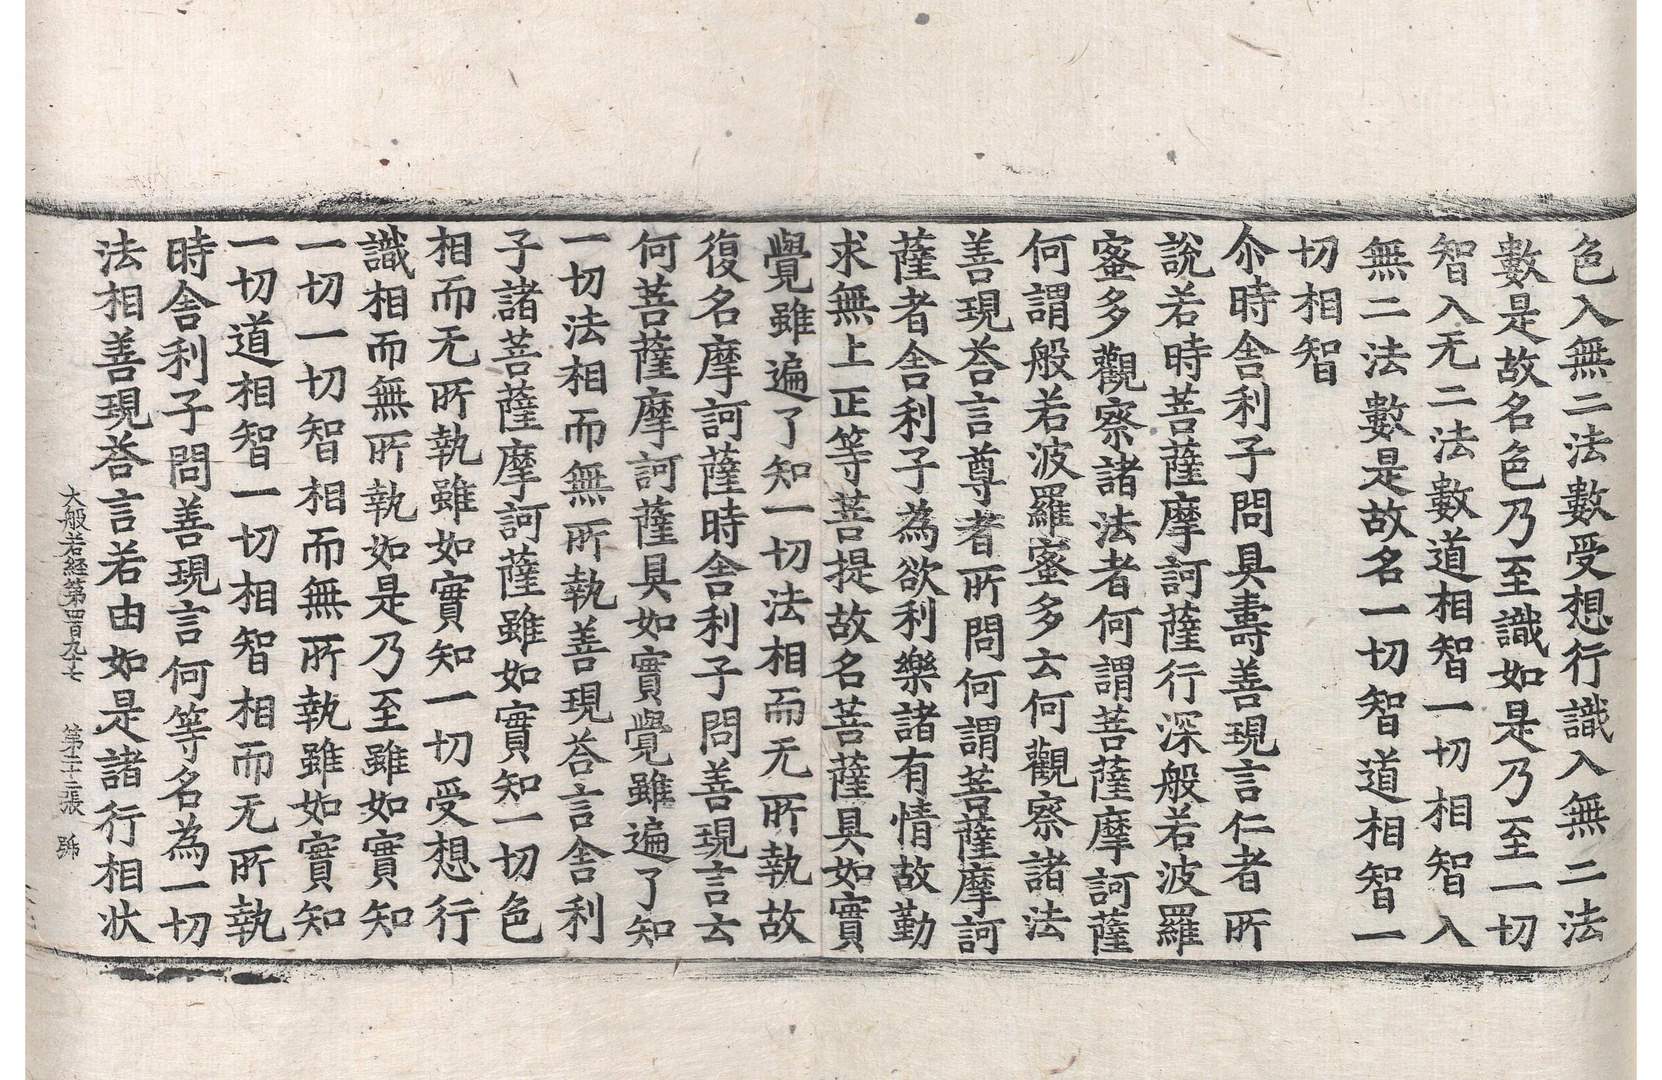 色入無二法數受想行識入無二法
數是故名色乃至識如是乃至一切
智入无二法數道相智一切相智入
無二法數是故名一切智道相智一
切相智
尒時舍利子問具壽善現言仁者所
說若時菩薩摩訶薩行深般若波羅
蜜多觀察諸法者何謂菩薩摩訶薩
何謂般若波羅蜜多云何觀察諸法
善現荅言尊者所問何謂菩薩摩訶
薩者舍利子為欲利樂諸有情故勤
求無上正等菩提故名菩薩具如實
覺雖遍了知一切法相而无所執故
復名摩訶薩時舍利子問善現言云
何菩薩摩訶薩具如實覺雖遍了知
一切法相而無所執善現荅言舍利
子諸菩薩摩訶薩雖如實知一切色
相而无所執雖如實知一切受想行
識相而無所執如是乃至雖如實知
一切一切智相而無所執雖如實知
一切道相智一切相智相而无所執
時舍利子問善現言何等名為一切
法相善現荅言若由如是諸行相狀
大般若経第四百九十七 第二十二張 號